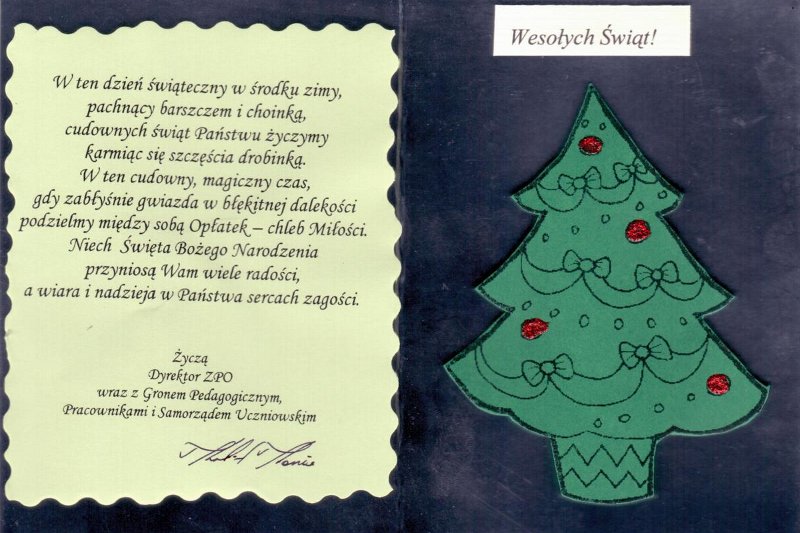 W ten dzień świąteczny w środku zimy,
pachnący barszczem i choinką,
cudownych świąt Państwu życzymy
karmiąc się szczęścia drobinką.
W ten cudowny, magiczny czas,
gdy zabłyśnie gwiazda w błękitnej dalekości
podzielmy między sobą Opłatek – chleb Miłości.
Niech Święta Bożego Narodzenia
przyniosą Wam wiele radości,
a wiara i nadzieja w Państwa sercach zagości.
Życzą
Dyrektor ZPO
wraz z Gronem Pedagogicznym,
Pracownikami i Samorządem Uczniowskim
Wesołych Świąt!